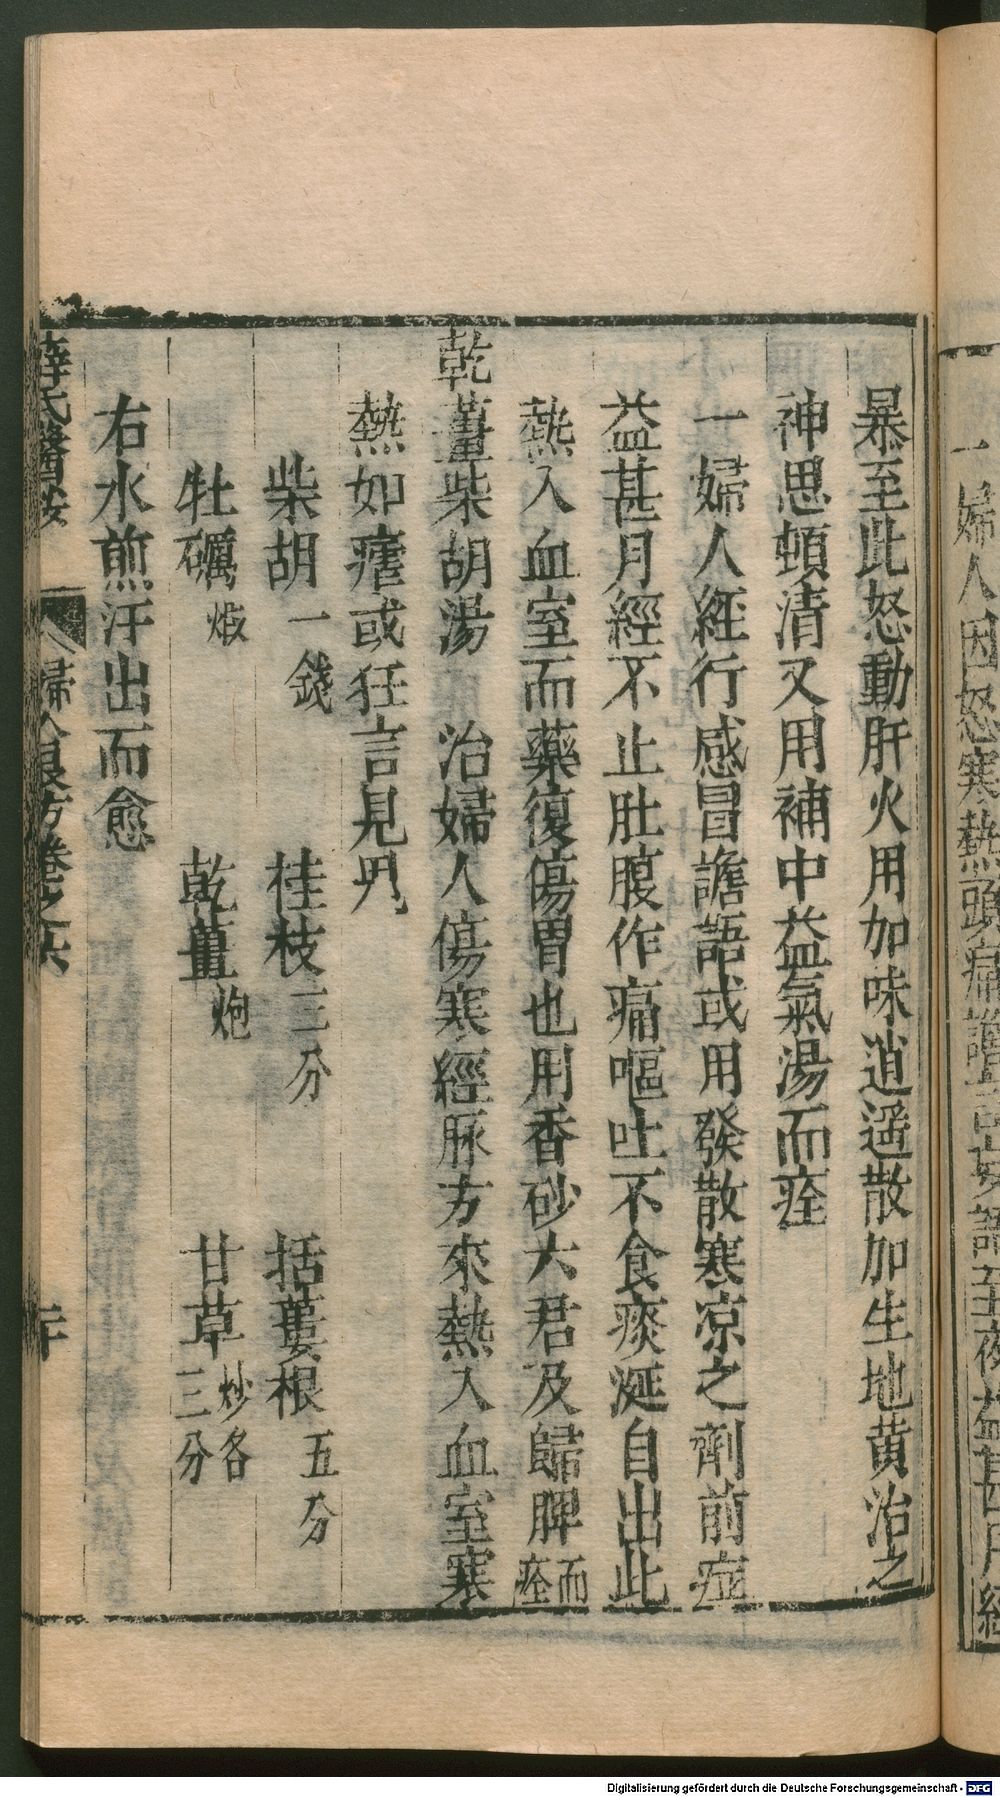 一婦人因怒寒熱頭痛譫言妄語至夜益甚月經
暴至此怒動肝火用加味逍遥散加生地黄治之
神思頓清又用補中益氣湯而痊
一婦人經行感冒譫語或用發散寒凉之劑前症
益甚月經不止肚腹作痛嘔吐不食痰涎自出此
熱入血室而藥復傷胃也用香砂六君及歸脾而痊
乾薑柴胡湯　治婦人傷寒經脉方來熱入血室寒
熱如瘧或狂言見鬼
柴胡一錢　桂枝三分　括蔞根五分
牡礪煅　乾薑炮　甘草炒各三分
右水煎汗出而愈
薛氏醫按　婦人良方卷之六
Digitalisierung gefördert durch die Deutsche Forschungsgemeinschaft - DFG